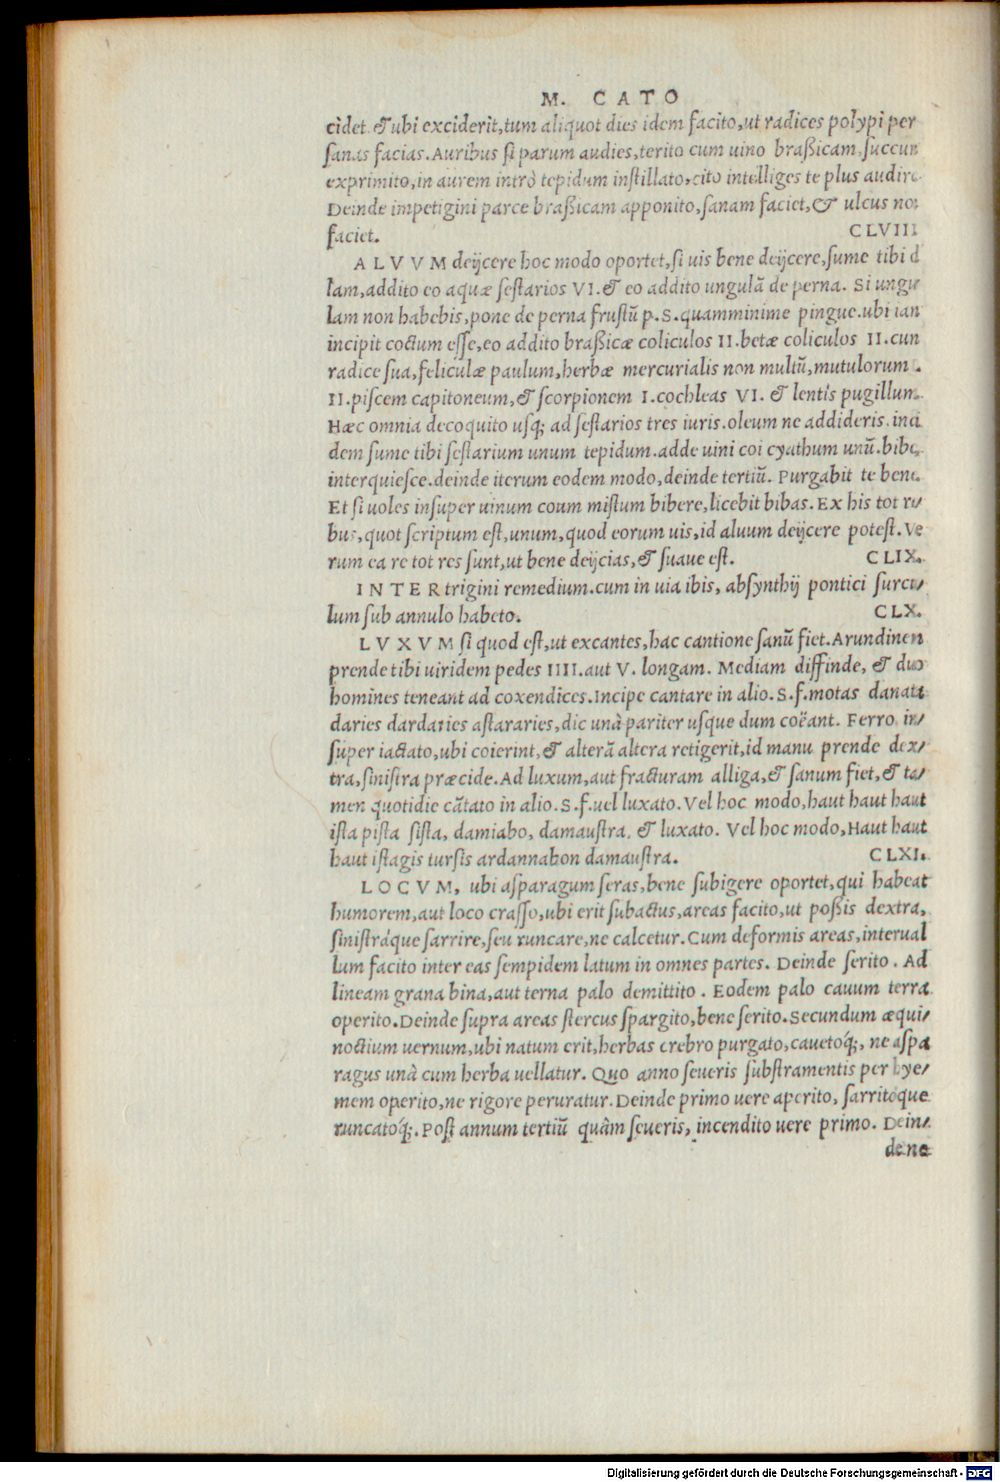 M. CATO
cidet. & ubi exciderit, tum aliquot dies idem facito, ut radices polypi per
sanas facias. Auribus si parum audies, terito cum uino braßicam, succum
exprimito, in aurem intrò tepidum instillato, cito intelliges te plus audire.
Deinde impetigini parce braßicam apponito, sanam faciet, & ulcus non
faciet. CLVIII
ALVVM deijcere hoc modo oportet, si uis bene deijcere, sume tibi
lam, addito eo aquæ sestarios VI. & eo addito ungulã de perna. Si ungu
lam non habebis, pone de perna frustũ p. S. quamminime pingue. ubi iam
incipit coctum esse, eo addito braßicæ coliculos II. betæ coliculos II. cum
radice sua, feliculæ paulum, herbæ mercurialis non multũ, mutulorum
II. piscem capitoneum, & scorpionem I. cochleas VI. & lentis pugillum.
Hæc omnia decoquito usq; ad sestarios tres iuris. oleum ne addideris. inci
dem sume tibi sestarium unum tepidum. adde uini coi cyathum unũ. bibe,
interquiesce. deinde iterum eodem modo, deinde tertiũ. Purgabit te bene.
Et si uoles insuper uinum coum mistum bibere, licebit bibas. Ex his tot re/
bus, quot scriptum est, unum, quod eorum uis, id aluum deijcere potest. Ve
rum ea re tot res sunt, ut bene deijcias, & suaue est. CLIX.
INTERtrigini remedium. cum in uia ibis, absynthij pontici surcu/
lum sub annulo habeto. CLX.
LVXVM si quod est, ut excantes, hac cantione sanũ fiet. Arundinem
prende tibi uiridem pedes IIII. aut V. longam. Mediam diffinde, & duo
homines teneant ad coxendices. Incipe cantare in alio. S. f. motas danata
daries dardaries astararies, dic unà pariter usque dum coëant. Ferro in/
super iactato, ubi coierint, & alterã altera retigerit, id manu prende dex/
tra, sinistra præcide. Ad luxum, aut fracturam alliga, & sanum fiet, & ta/
men quotidie cãtato in alio. S. f. uel luxato. Vel hoc modo, haut haut haut
ista pista sista, damiabo, damaustra. & luxato. Vel hoc modo, Haut haut
haut istagis tursis ardannabon damaustra. CLXI.
LOCVM, ubi asparagum seras, bene subigere oportet, qui habeat
humorem, aut loco crasso, ubi erit subactus, areas facito, ut poßis dextra,
sinistráque sarrire, seu runcare, ne calcetur. Cum deformis areas, interual
lum facito inter eas sempidem latum in omnes partes. Deinde serito. Ad
lineam grana bina, aut terna palo demittito. Eodem palo cauum terra
operito. Deinde supra areas stercus spargito, bene serito. Secundum æqui/
noctium uernum, ubi natum erit, herbas crebro purgato, cauetóq;, ne aspa
ragus unà cum herba uellatur. Quo anno seueris substramentis per hye/
mem operito, ne rigore peruratur. Deinde primo uere aperito, sarritoque
runcatóq;. Post annum tertiũ quàm seueris, incendito uere primo. Dein/
de ne
Digitalisierung gefördert durch die Deutsche Forschungsgemeinschaft - DFG